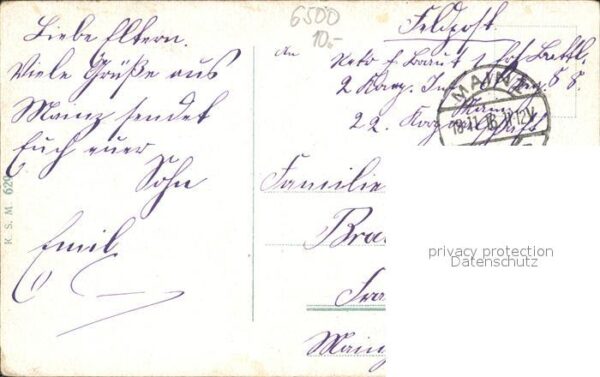 6500
10.-
Liebe Eltern.
Viele Grüße aus
Mainz sendet
Euch euer
Sohn
Emil
Feldpost.
An
2 Komp. Inf. Reg. 88.
MAINZ
18.11.16.11-12V.
22.
Familie
Bra
Mainz
privacy protection
Datenschutz
K. S. M 629